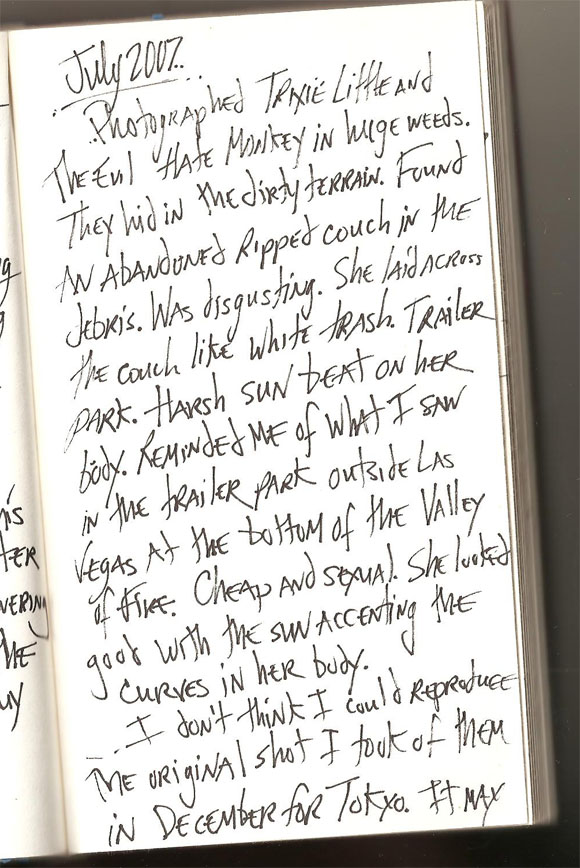 July 2007.
Photographed Trixie Little and
The Evil Hate Monkey in huge weeds.
They hid in the dirty terrain. Found
an abandoned ripped couch in the
debris. Was disgusting. She laid across
the couch like white trash. Trailer
park. Harsh sun beat on her
body. Reminded me of what I saw
in the trailer park outside Las
Vegas at the bottom of the Valley
of Fire. Cheap and sexual. She looked
good with the sun accenting the
curves in her body.
I don't think I could reproduce
the original shot I took of them
in December for Tokyo. It may